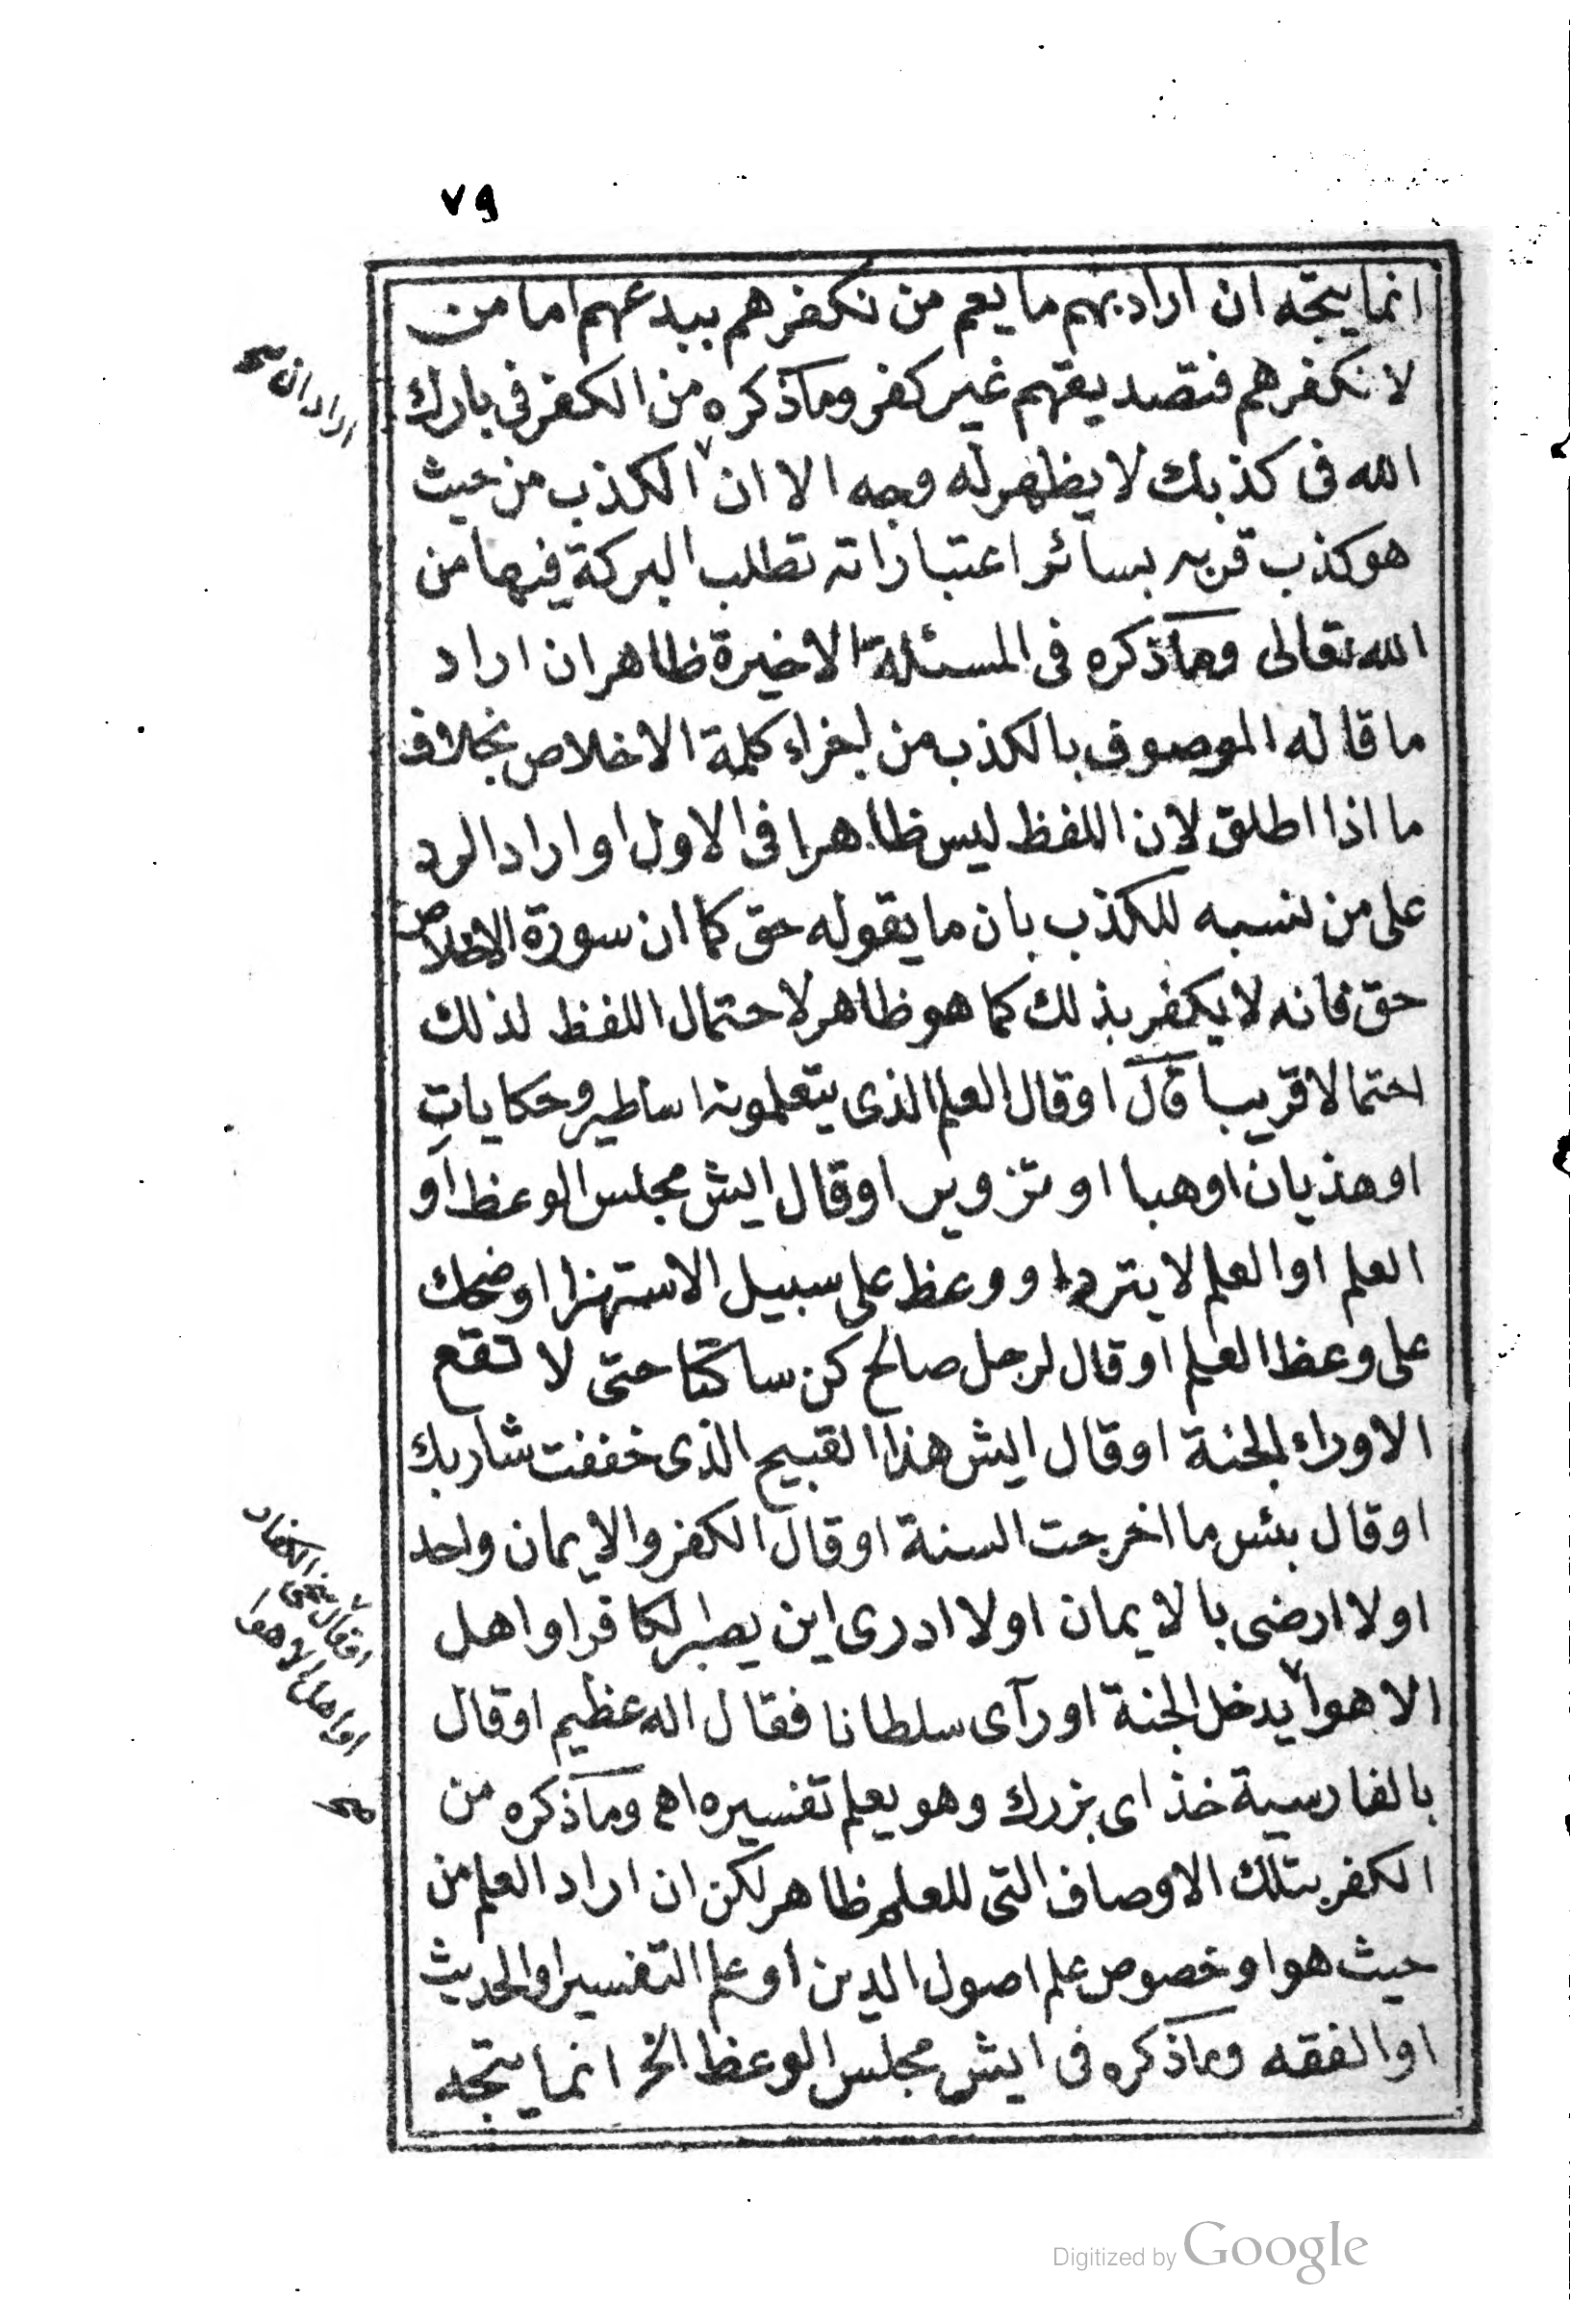 ٧٩
انما يتجه ان اراد بهم ما يعم من نكفرهم ببدعهم اما من
لا نكفرهم فتصديقهم غير كفر وما ذكره من الكفر فى بارك
الله فى كذبك لا يظهر له وجه الا ان الكذب من حيث
هو كذب قربه بسائر اعتباراته تطلب البركة فيها من
الله تعالى وما ذكره فى المسئلة الاخيرة ظاهر ان اراد
ما قاله الموصوف بالكذب من اجزاء كلمة الاخلاص بخلاف
ما اذا اطلق لان اللفظ ليس ظاهرا فى الاول او اراد الرد
على من نسبه للكذب بان ما يقوله حق كما ان سورة الاخلاص
حق فانه لا يكفر بذلك كما هو ظاهر لاحتمال اللفظ لذلك
احتمالا قريبا قال او قال العلم الذى يتعلمونه اساطير وحكايات
او هذيان او هبا او تزوير او قال ايش مجلس الوعظ او
العلم او العلم لا يترد او وعظ على سبيل الاستهزا او ضحك
على وعظ العلم او قال لرجل صالح كن ساكتا حتى لا تقع
الاوراء الجنة او قال ايش هذا القبيح الذى خففت شاربك
او قال بئس ما اخرجت السنة او قال الكفر والايمان واحد
او لا ارضى بالايمان او لا ادرى اين يصير الكافر او اهل
الاهوا يدخل الجنة او رآى سلطانا فقال اله عظيم او قال
بالفارسية خذ اى بزرك وهو يعلم تفسيره اه وما ذكره من
الكفر بتلك الاوصاف التى للعلم ظاهر لكن ان اراد العلم من
حيث هو او خصوص علم اصول الدين او علم التفسير او الحديث
او الفقه وما ذكره فى ايش مجلس الوعظ الخ انما يتجه
اراد ان صح
او قال الكفار
او اهل الاهوا
صح
Digitized by Google